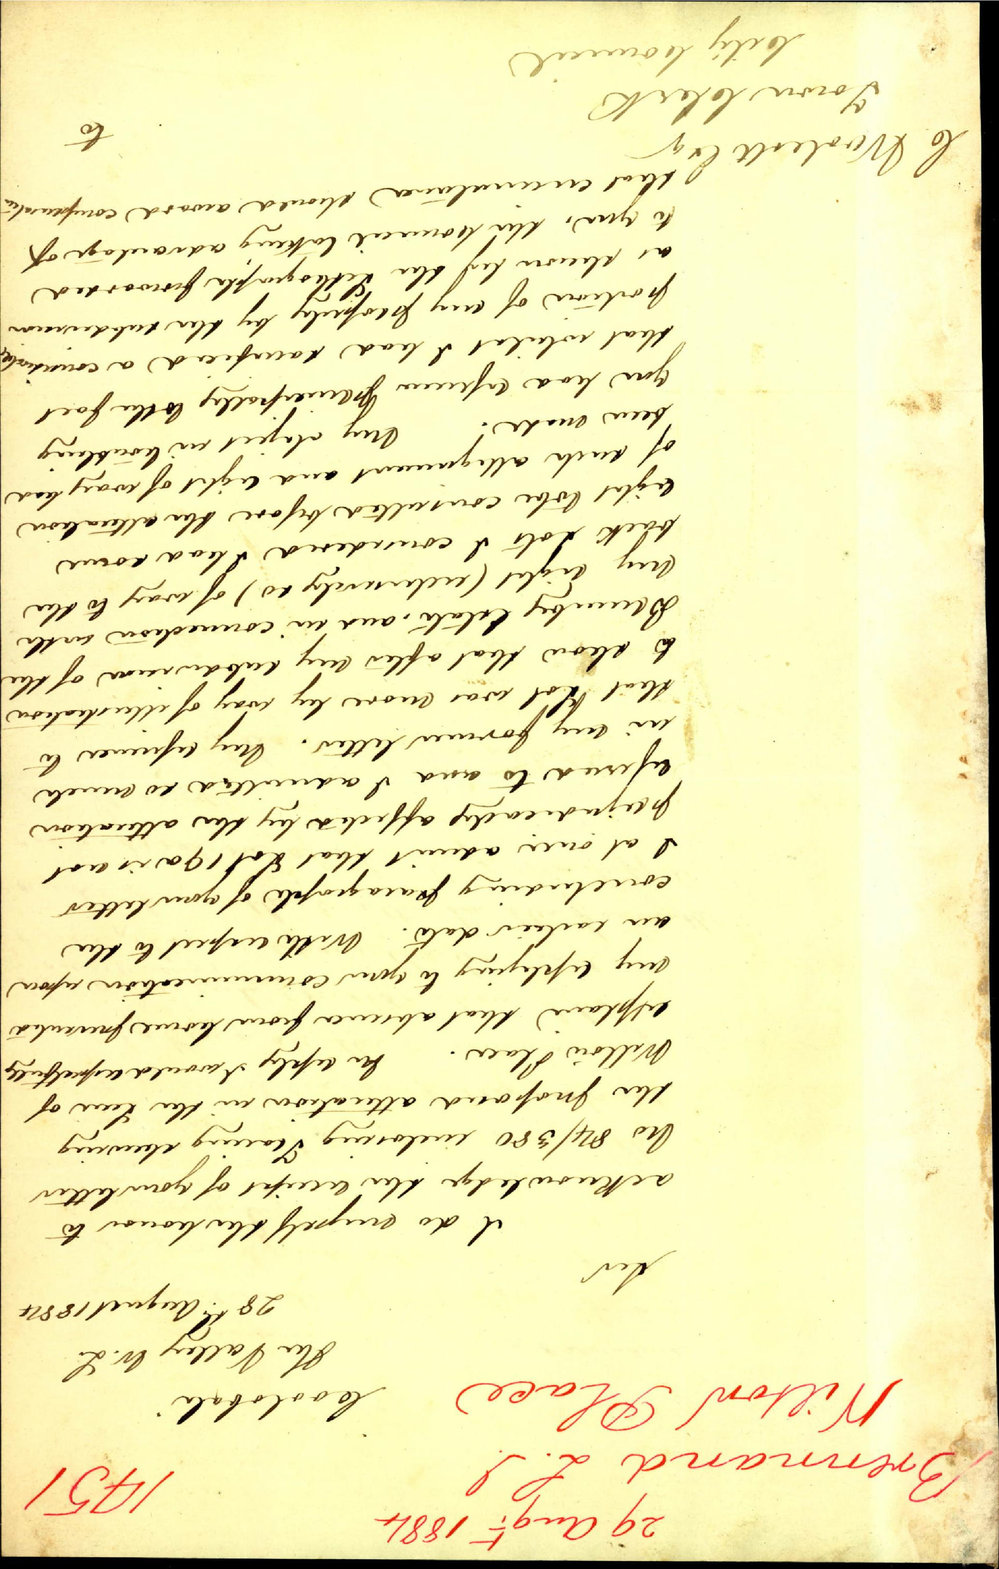 29 Augt 1884
1451
Brennand L. J.
Wilton Place
Coolabah
The Valley N.L.
28th August 1884
Sir
I do myself the honor to
acknowledge the receipt of your letter
No 84/380 inclosing Tracing shewing
the proposed alteration in the Line of
Wilton Place. In reply I would respectfully
explain that absence from home prevented
my replying to your communication upon
an earlier date. With respect to the
concluding paragraph of your letter
I at once admit that Lot 19a is not
prejudicially affected by the alteration
referred to and I admitted so much
in my former letter. My reference to
that Lot was more by way of illustration
to show that after my subdivision of the
Blumby Estate, and in connection with
my right (inclusively so) of way to the
back Lots I considered I had some
right to be consulted before the alteration
of such allignment and right of way had
been made. My object in troubling
you had reference principally to the fact
that whilst I had sacrificed a considerable
portion of my property by the subdivision
as shewn by the Lithograph forwarded
to you, the Council taking advantage of
that circumstance should award compensation
to
C Woolcott Esq
Town Clerk
City Council